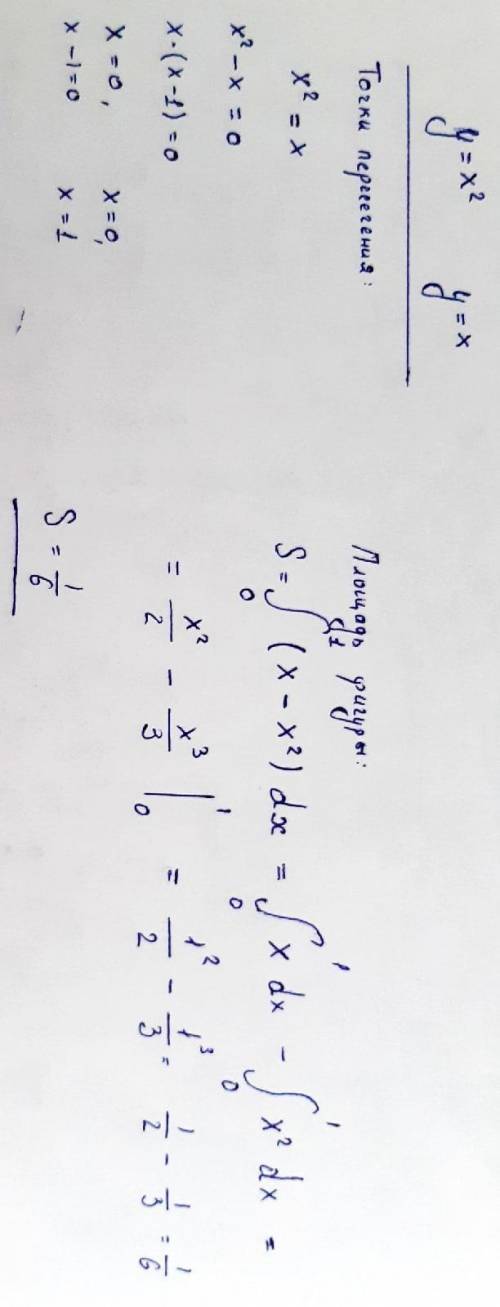 y = x²    y = x
Точки пересечения:
x² = x
x² - x = 0
x·(x-1) = 0
x = 0,    x = 0,
x - 1 = 0    x = 1
Площадь фигуры:
S = ∫₀¹ (x - x²) dx = ∫₀¹ x dx - ∫₀¹ x² dx =
= x²/2 - x³/3 |₀¹ = 1²/2 - 1³/3 = 1/2 - 1/3 = 1/6
S = 1/6